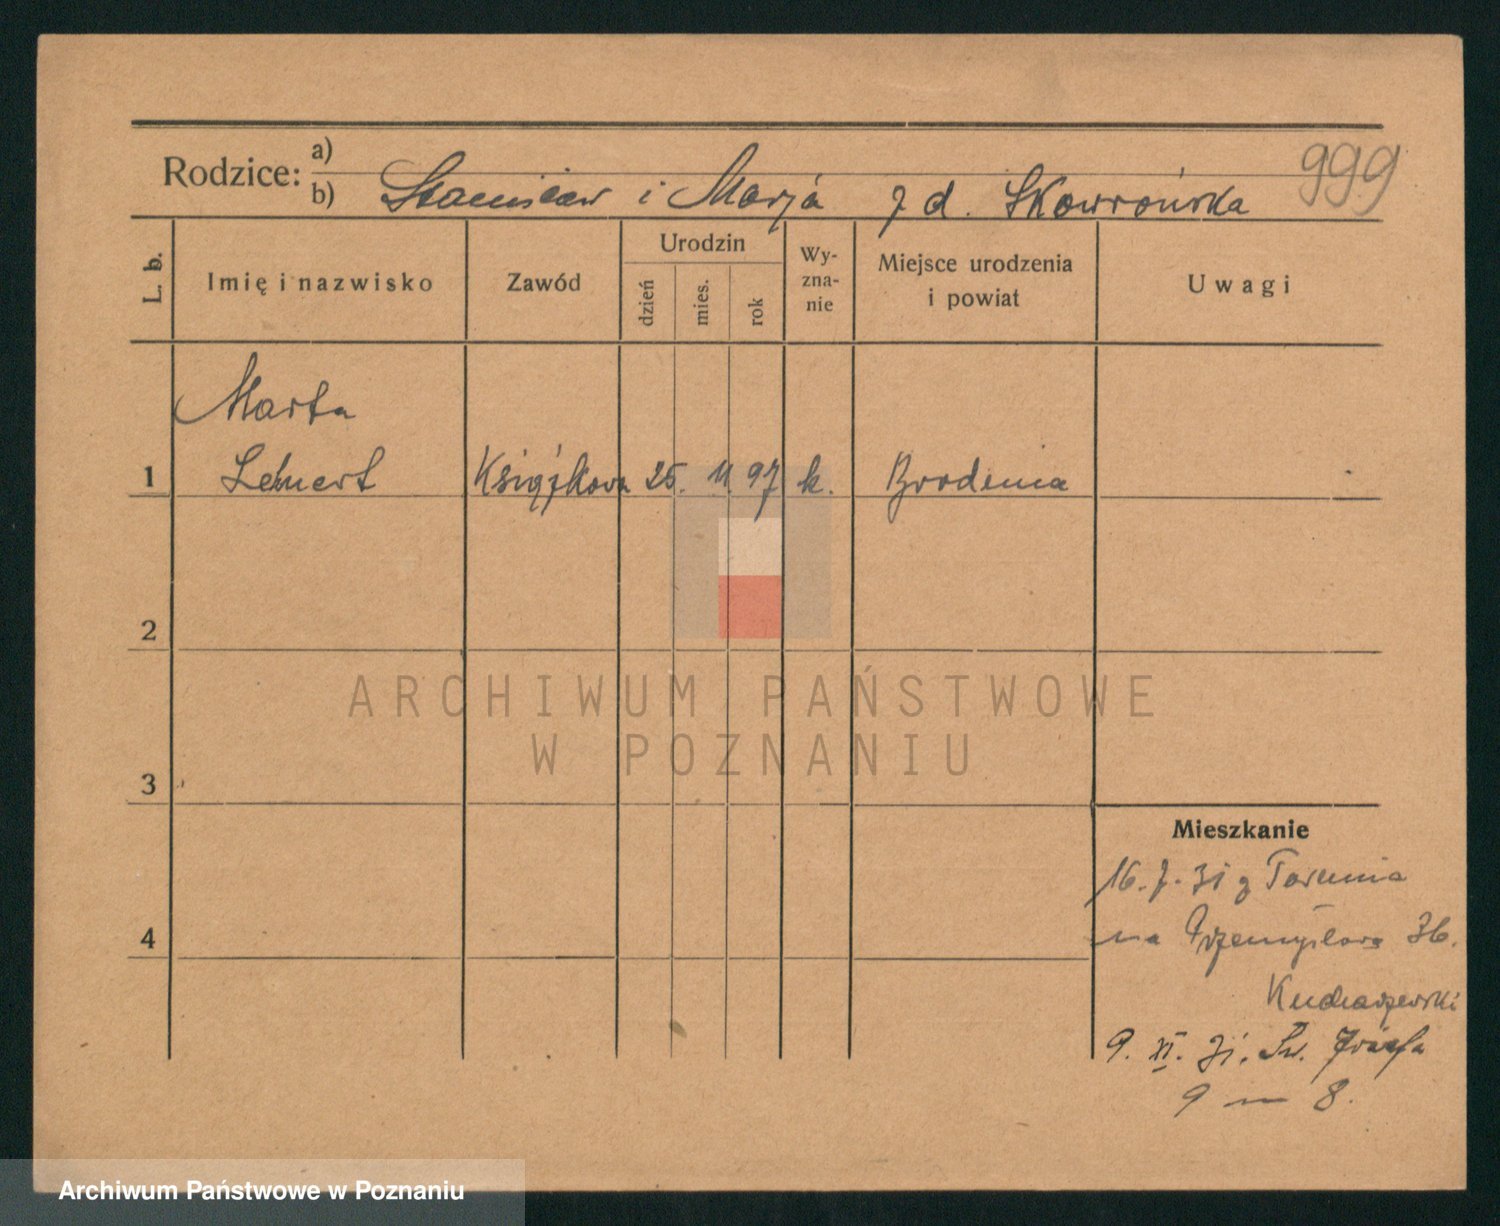 999
Rodzice: a)
b) Stanisław i Marja z d. Skowrońska
L. b.
Imię i nazwisko
Zawód
Urodzin
dzień
mies.
rok
Wy-
zna-
nie
Miejsce urodzenia
i powiat
Uwagi
Marta
1 Lehnert Książkowa 25. 11. 97 k. Brodnica
2
3
4
Mieszkanie
16. 7. 31 z Torunia
na Przemysłowa 36.
9. XI. 31. Św. Józefa
9 m 8.
ARCHIWUM PAŃSTWOWE
W POZNANIU
Archiwum Państwowe w Poznaniu